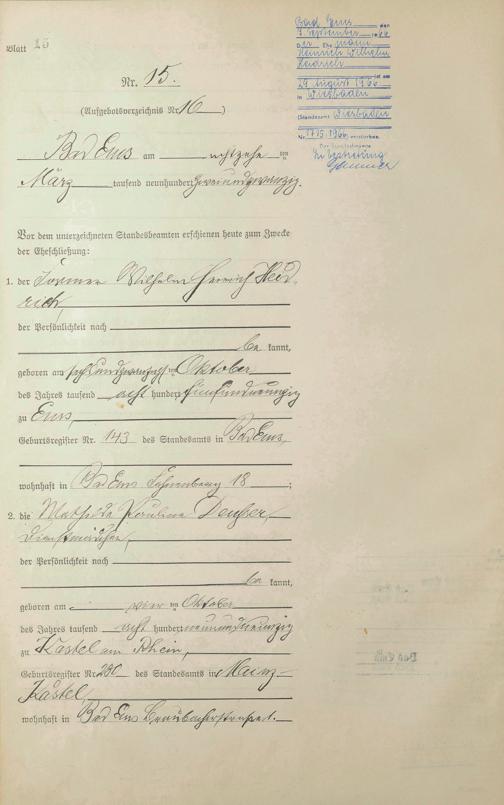 Blatt 15
Nr. 15.
(Aufgebotsverzeichnis Nr. 16)
Bad Ems am achtzehnten
März tausend neunhundert zweiundzwanzig.
Vor dem unterzeichneten Standesbeamten erschienen heute zum Zwecke
der Eheschließung:
1. der Former Wilhelm Heinrich Heid-
rich,
der Persönlichkeit nach
be kannt,
geboren am sechsundzwanzigsten Oktober
des Jahres tausend acht hundert fünfundneunzig
zu Ems,
Geburtsregister Nr. 143 des Standesamts in Bad Ems,
wohnhaft in Bad Ems 18;
2. die Mathilde Pauline
der Persönlichkeit nach
be kannt,
geboren am vierten Oktober
des Jahres tausend acht hundert neunundneunzig
zu Kastel am Rhein,
Geburtsregister Nr. 230 des Standesamts in Mainz-
Kastel,
wohnhaft in Bad Ems
Bad Ems den
7. September 1966
Der Ehemann
Heinrich Wilhelm
Heidrich
ist am
29. August 1966
in Wiesbaden
(Standesamt Wiesbaden
Nr. 1715/1966) verstorben.
Der Standesbeamte
In Vertretung